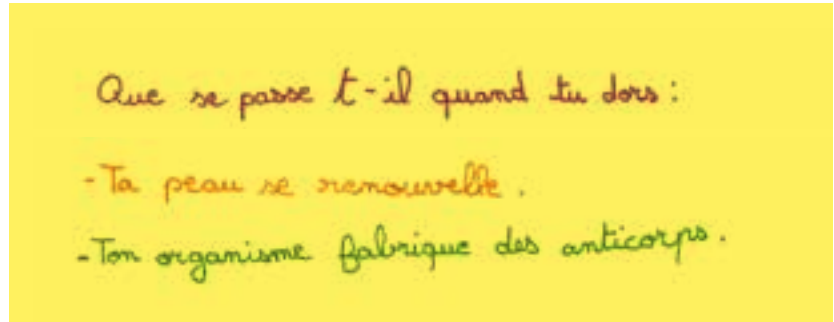 Que se passe t-il quand tu dors :
- Ta peau se renouvelle.
- Ton organisme fabrique des anticorps.